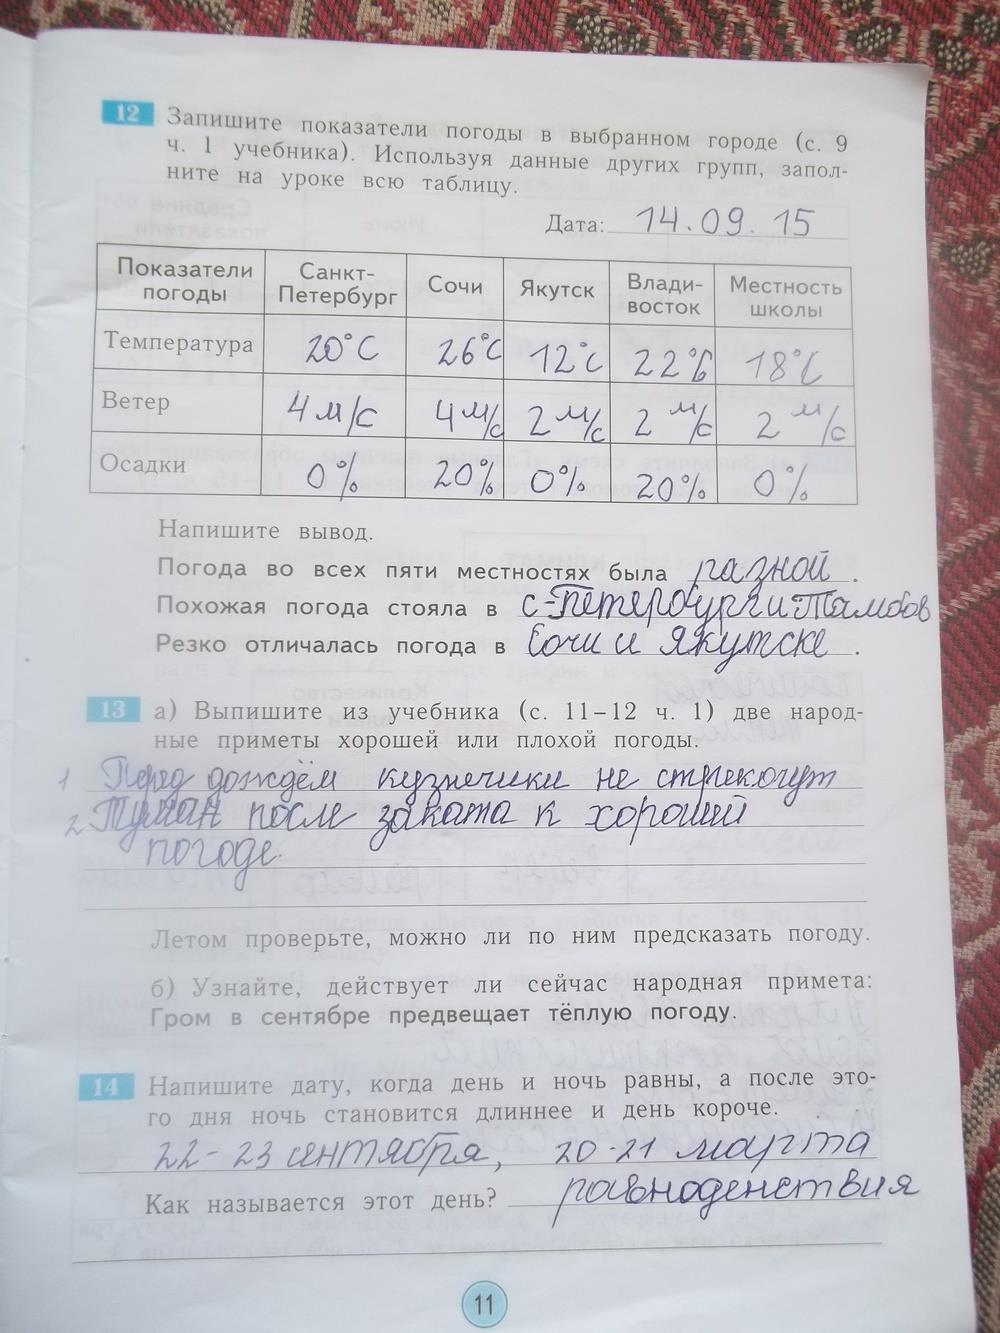 12 Запишите показатели погоды в выбранном городе (с. 9
ч. 1 учебника). Используя данные других групп, запол-
ните на уроке всю таблицу.
Дата: 14.09.15
Показатели погоды Санкт-Петербург Сочи Якутск Влади-восток Местность школы
Температура 20°C 26°C 12°C 22°C 18°C
Ветер 4 м/с 4 м/с 2 м/с 2 м/с 2 м/с
Осадки 0% 20% 0% 20% 0%
Напишите вывод.
Погода во всех пяти местностях была разной.
Похожая погода стояла в С-Петербург и Тамбов
Резко отличалась погода в Сочи и Якутске.
13 а) Выпишите из учебника (с. 11–12 ч. 1) две народ-
ные приметы хорошей или плохой погоды.
1 Перед дождём кузнечики не стрекочут
2. Туман после заката к хороший
погоде.
Летом проверьте, можно ли по ним предсказать погоду.
б) Узнайте, действует ли сейчас народная примета:
Гром в сентябре предвещает тёплую погоду.
14 Напишите дату, когда день и ночь равны, а после это-
го дня ночь становится длиннее и день короче.
22-23 сентября, 20-21 марта
Как называется этот день? равноденствия
11